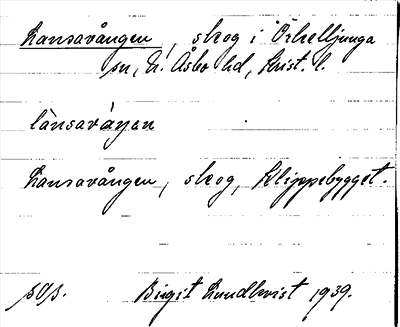 Lansavången, skog i Örkelljunga
sn, N. Åsbo hd, Krist. l.
lànsaváŋan
Lansavången, skog, Klippebygget.
Birgit Lundkvist 1939.